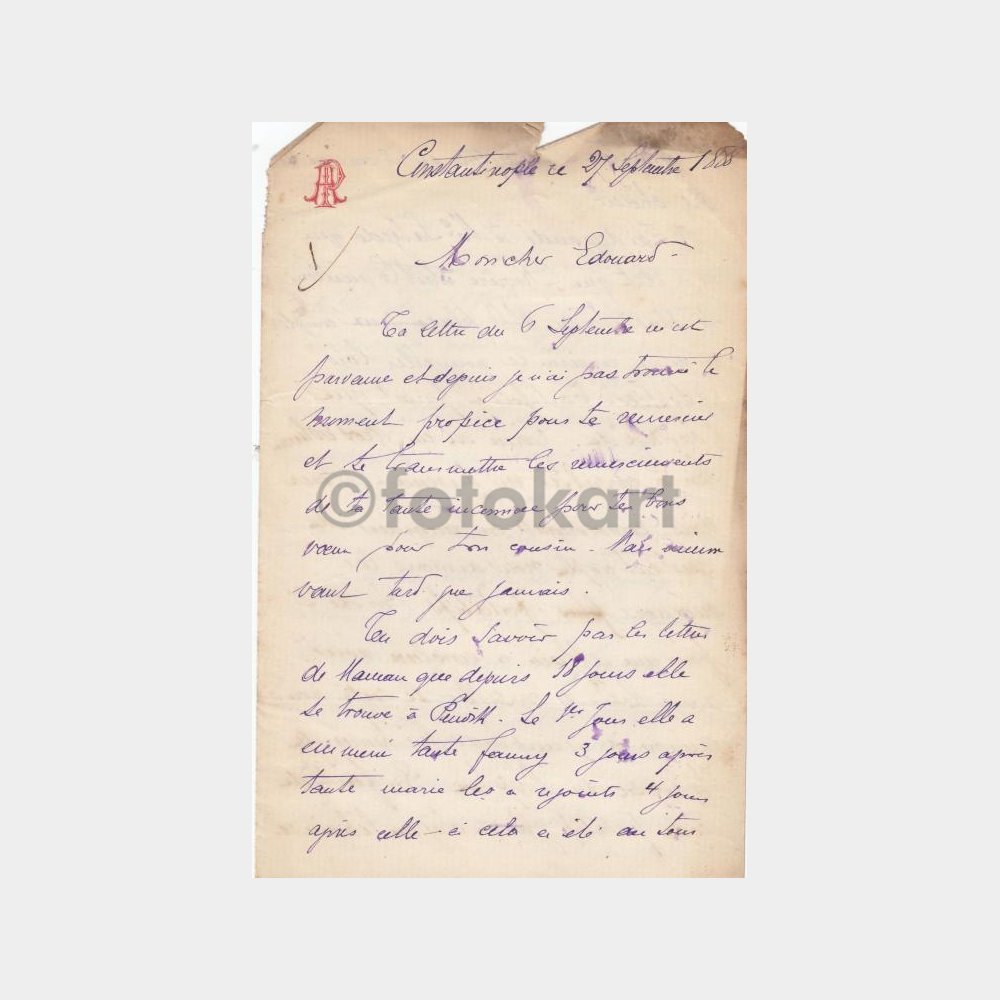 PR
Constantinople ce 27 Septembre 1888
1
Mon cher Edouard -
Ta lettre du 6 Septembre m'est
parvenue et depuis je n'ai pas trouvé le
moment propice pour te remercier
et te transmettre les remerciements
de ta tante inconnue pour tes bons
vœux pour ton cousin. Mais
vaut tard que jamais.
Tu dois savoir par les lettres
de Maman que depuis 18 jours elle
se trouve à Pendik. Le 1er Jour elle a
emmené tante fanny 3 jours après
tante marie les a rejoints 4 jours
après celle-ci cela a été au tour
©fotokart